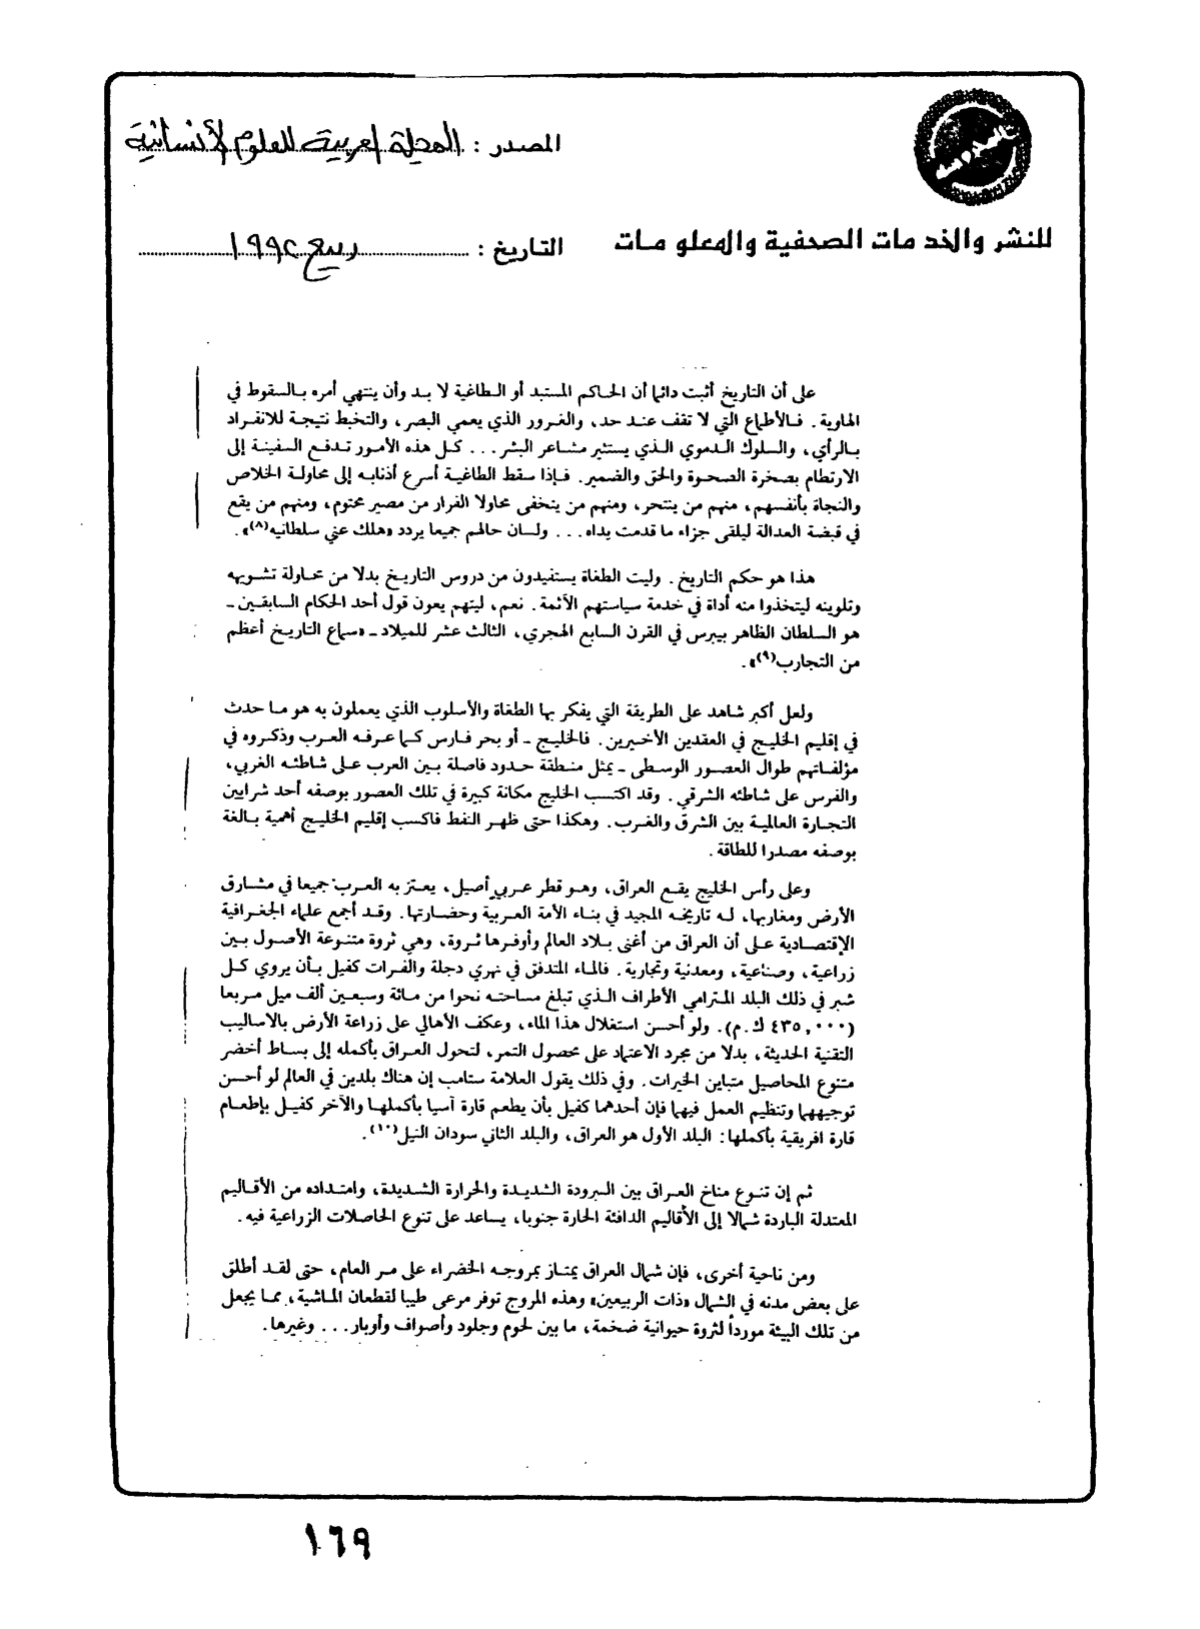 المصدر : المجلة العربية للعلوم الأنسانية
للنشر والخدمات الصحفية والمعلومات
التاريخ : ربيع ١٩٩٢
على أن التاريخ أثبت دائما أن الحاكم المستبد أو الطاغية لا بد وأن ينتهي أمره بالسقوط في
الهاوية . فالأطماع التي لا تقف عند حد، والغرور الذي يعمي البصر، والتخبط نتيجة للانفراد
بالرأي، والسلوك الدموي الذي يستثير مشاعر البشر . . . كل هذه الأمور تدفع السفينة إلى
الارتطام بصخرة الصحوة والحق والضمير. فإذا سقط الطاغية أسرع أذنابه إلى محاولة الخلاص
والنجاة بأنفسهم، منهم من ينتحر، ومنهم من يتخفى محاولا الفرار من مصير محتوم، ومنهم من يقع
في قبضة العدالة ليلقى جزاء ما قدمت يداه . . . ولسان حالهم جميعا يردد «هلك عني سلطانيه(٨)» .
هذا هو حكم التاريخ . وليت الطغاة يستفيدون من دروس التاريخ بدلا من محاولة تشويهه
وتلوينه ليتخذوا منه أداة في خدمة سياستهم الآثمة . نعم، ليتهم يعون قول أحد الحكام السابقين ـ
هو السلطان الظاهر بيبرس في القرن السابع الهجري، الثالث عشر للميلاد ـ «سماع التاريخ أعظم
من التجارب(٩)» .
ولعل أكبر شاهد على الطريقة التي يفكر بها الطغاة والأسلوب الذي يعملون به هو ما حدث
في إقليم الخليج في العقدين الأخيرين . فالخليج ـ أو بحر فارس كما عرفه العرب وذكروه في
مؤلفاتهم طوال العصور الوسطى ـ يمثل منطقة حدود فاصلة بين العرب على شاطئه الغربي،
والفرس على شاطئه الشرقي . وقد اكتسب الخليج مكانة كبيرة في تلك العصور بوصفه أحد شرايين
التجارة العالمية بين الشرق والغرب. وهكذا حتى ظهر النفط فاكسب إقليم الخليج أهمية بالغة
بوصفه مصدرا للطاقة .
وعلى رأس الخليج يقع العراق، وهو قطر عربي أصيل، يعتز به العرب جميعا في مشارق
الأرض ومغاربها، له تاريخه المجيد في بناء الأمة العربية وحضارتها. وقد أجمع علماء الجغرافية
الإقتصادية على أن العراق من أغنى بلاد العالم وأوفرها ثروة، وهي ثروة متنوعة الأصول بين
زراعية، وصناعية، ومعدنية وتجارية . فالماء المتدفق في نهري دجلة والفرات كفيل بأن يروي كل
شبر في ذلك البلد المترامي الأطراف الذي تبلغ مساحته نحوا من مائة وسبعين ألف ميل مربعا
(٤٣٥,٠٠٠ ك.م). ولو أحسن استغلال هذا الماء، وعكف الأهالي على زراعة الأرض بالاساليب
التقنية الحديثة، بدلا من مجرد الاعتماد على محصول التمر، لتحول العراق بأكمله إلى بساط أخضر
متنوع المحاصيل متباين الخيرات. وفي ذلك يقول العلامة ستامب إن هناك بلدين في العالم لو أحسن
توجيههما وتنظيم العمل فيهما فإن أحدهما كفيل بأن يطعم قارة آسيا بأكملها والآخر كفيل بإطعام
قارة افريقية بأكملها: البلد الأول هو العراق، والبلد الثاني سودان النيل(١٠).
ثم إن تنوع مناخ العراق بين البرودة الشديدة والحرارة الشديدة، وامتداده من الأقاليم
المعتدلة الباردة شمالا إلى الأقاليم الدافئة الحارة جنوبا، يساعد على تنوع الحاصلات الزراعية فيه .
ومن ناحية أخرى، فإن شمال العراق يمتاز بمروجه الخضراء على مر العام، حتى لقد أطلق
على بعض مدنه في الشمال «ذات الربيعين» وهذه المروج توفر مرعى طيبا لقطعان الماشية، مما يجعل
من تلك البيئة مورداً لثروة حيوانية ضخمة، ما بين لحوم وجلود وأصواف وأوبار . . . وغيرها .
١٦٩